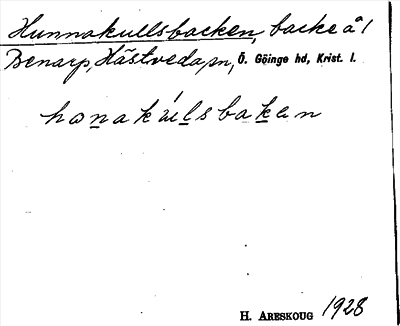 Hunnakullsbacken, backe å 1
Benarp, Hästveda sn, Ö. Göinge hd, Krist. l.
honakúlsbakan
H. Areskoug 1928